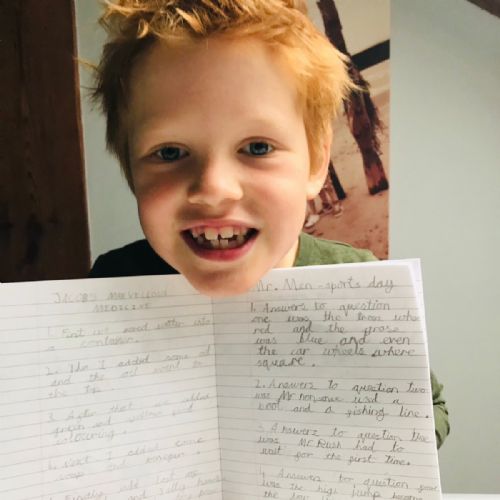 JACOBS MARVELLOUS
MEDICINE
1. First we added water into
a container.
2. Then I added some oil
and the oil went to
the top.
3. After that I added
green and yellow food
colouring.
4. Next I added some
soap and
5. Finally, we left
and
Mr. Men - sports day
1. Answers to question
one was the trees where
red and the grass
was blue and even
the car wheels where
square.
2. Answers to question two
was Mr nonsense used a
boot and a fishing line.
3. Answers to question three
was Mr Rush had to
wait for the first time.
4. Answers to question four
was the high jump
the